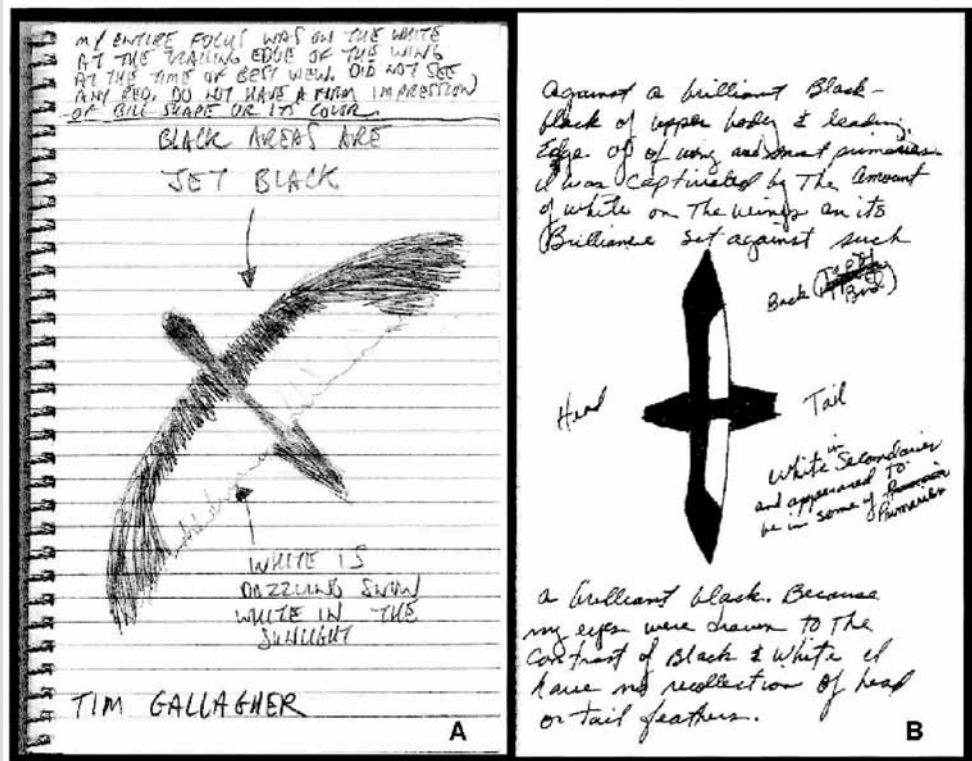 MY ENTIRE FOCUS WAS ON THE WHITE
AT THE TRAILING EDGE OF THE WING
AT THE TIME OF BEST VIEW. DID NOT SEE
ANY RED. DO NOT HAVE A FIRM IMPRESSION
OF BILL SHAPE OR ITS COLOR.
BLACK AREAS ARE
JET BLACK
WHITE IS
DAZZLING SNOW
WHITE IN THE
SUNLIGHT
TIM GALLAGHER
A
Against a brilliant Black-
black of upper body & leading
Edge of of wing and most primaries
I was captivated by The Amount
of white on The wings an its
Brilliance set against such
Back (
Bird)
Head
Tail
White in
White Secondaries
and appeared to
be in some of
Primaries
a brilliant black. Because
my eyes were drawn to The
Contrast of Black & White I
have no recollection of head
or tail feathers.
B